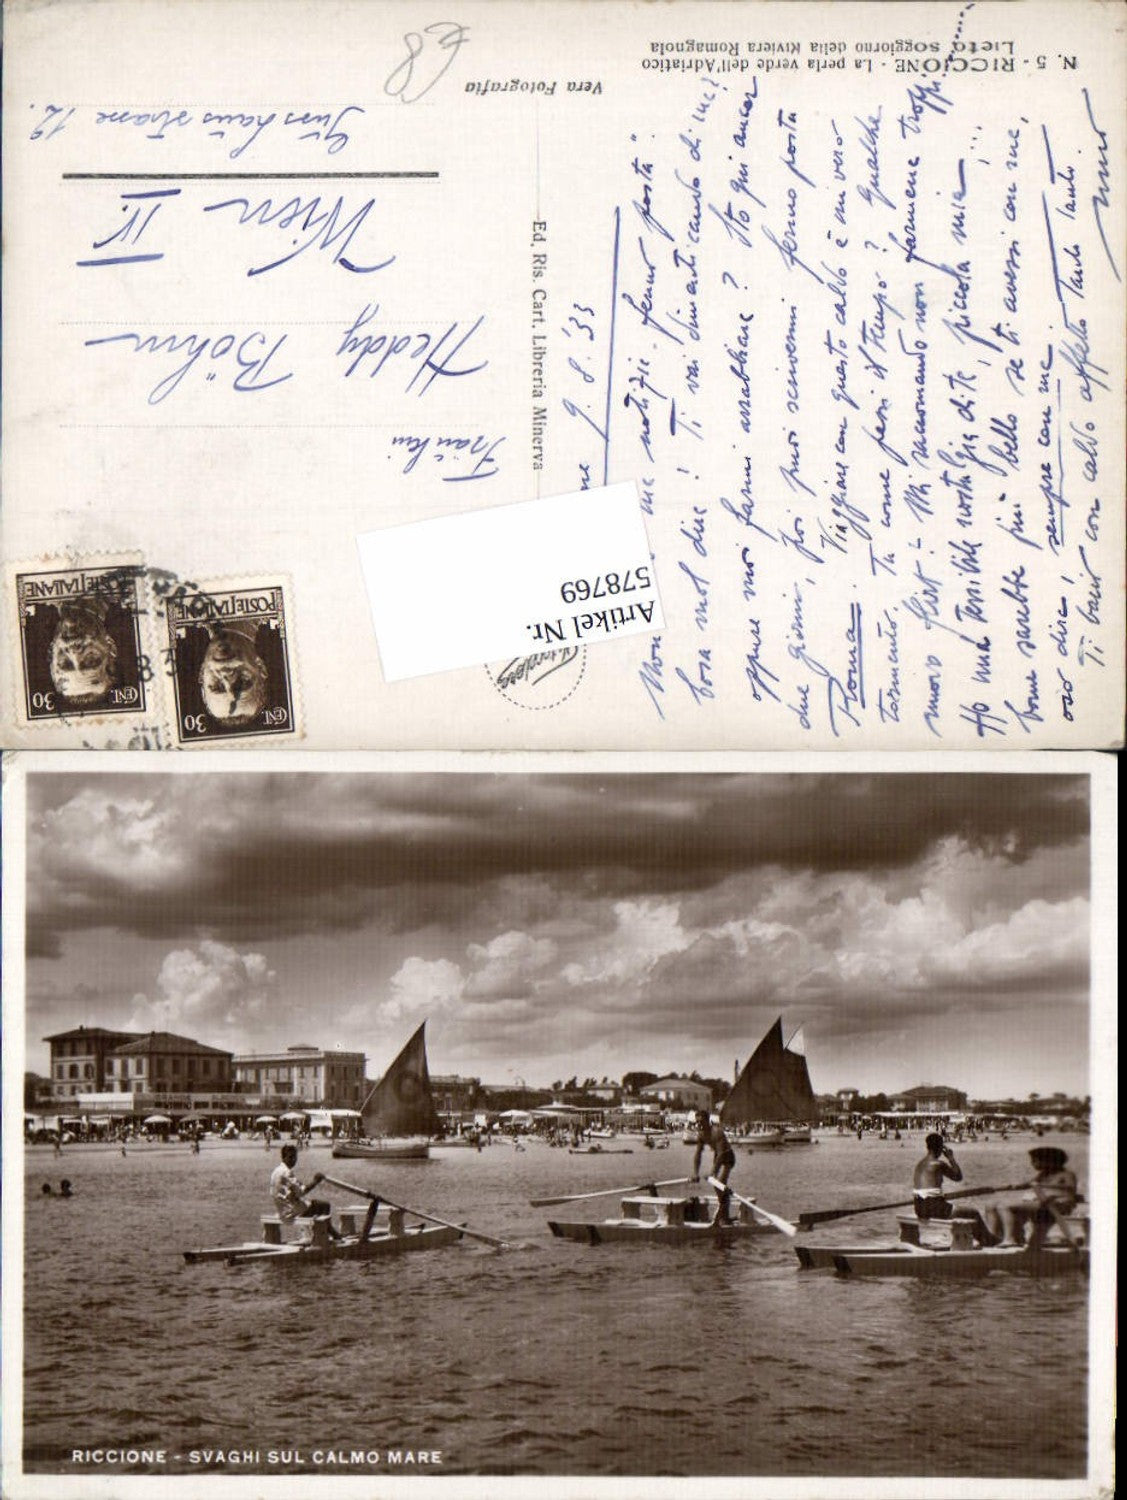 N. 5 - RICCIONE - La perla verde dell'Adriatico
Lieto soggiorno della Riviera Romagnola
Vera Fotografia
€8
Ed. Ris. Cart. Libreria Minerva
9. 8. 33
notizie - fermo posta".
cosa vuol dire! Ti vai dimenticando di me?
oppure vuoi farmi arrabbiare? Sto qui ancor
due giorni, poi puoi scrivermi fermo posta
Roma. Viaggiare con questo caldo è un vero
tormento. Tu come passi il tempo? Qualche
nuovo flirt! - Mi raccomando non farmene troppi
Ho una terribile nostalgia di te, piccola mia
come sarebbe più bello se ti avessi con me,
oso dire, sempre con me.
Ti bacio con caldo affetto tanto tanto
Fräulein
Heddy Böhm
Wien IV.
Gusshausstrasse 12.
POSTE ITALIANE
CENT. 30
POSTE ITALIANE
CENT. 30
Artikel Nr.
578769
RICCIONE - SVAGHI SUL CALMO MARE